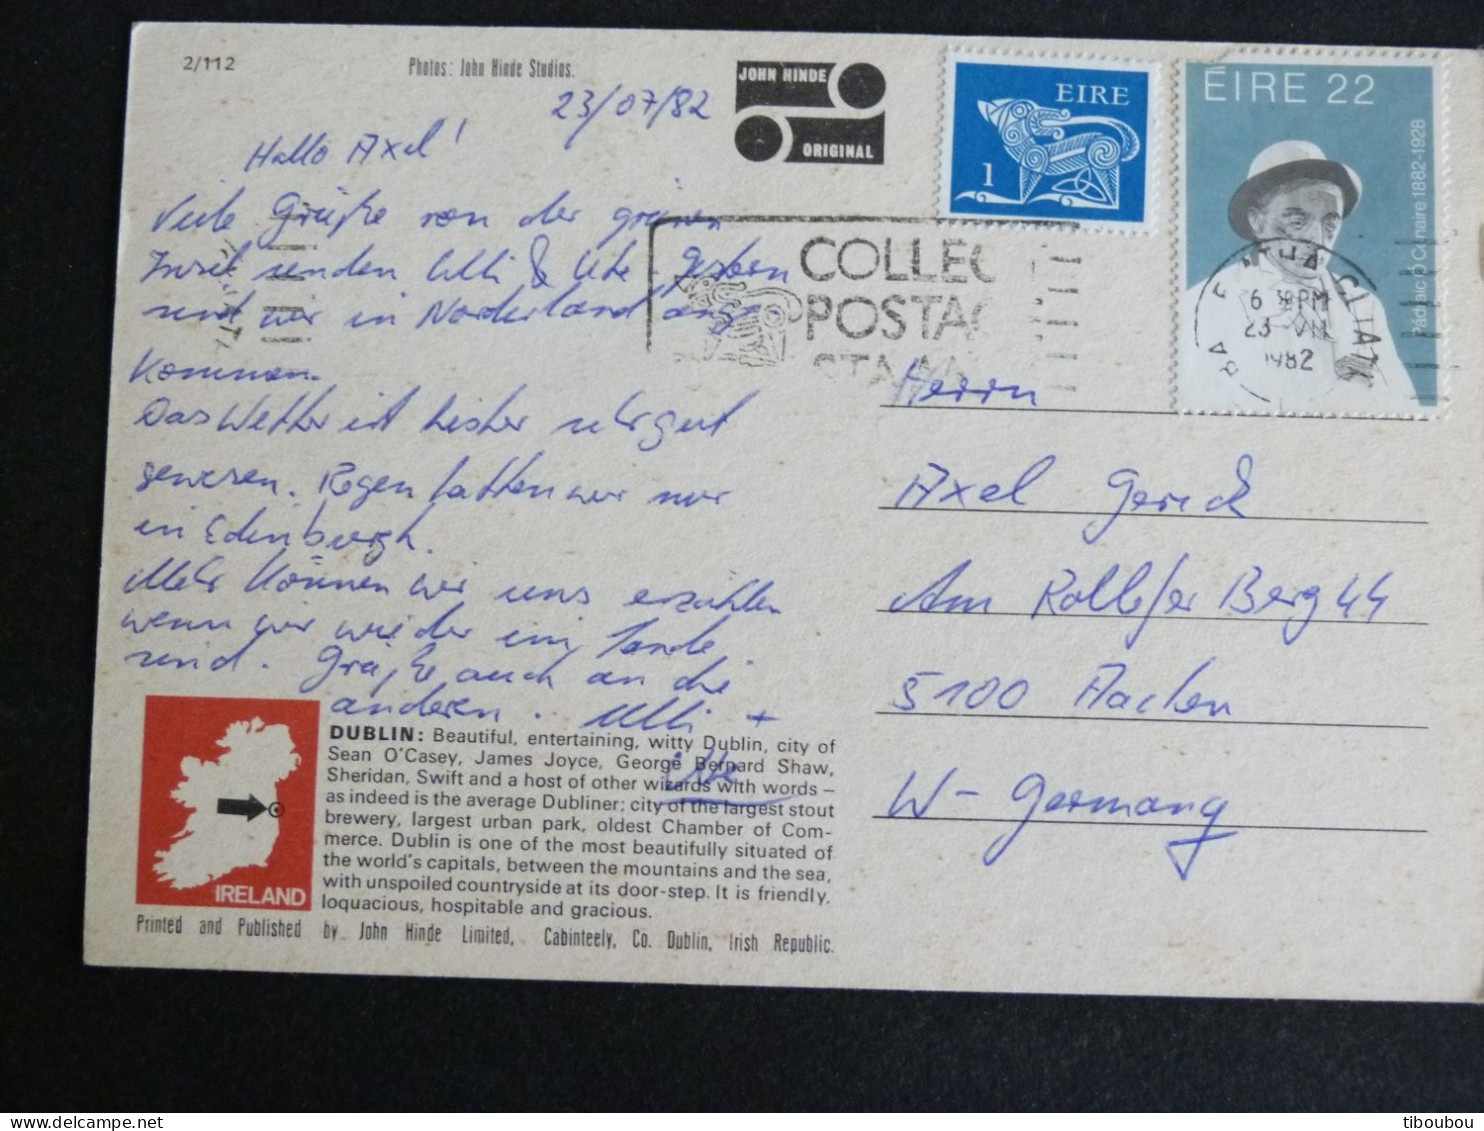 2/112
Photos: John Hinde Studios.
JOHN HINDE
ORIGINAL
23/07/82
EIRE
1
ÉIRE 22
Pádraic Ó Conaire 1882-1928
Hallo Axel!
Viele Grüße von der grünen
Insel senden Ulli & Ute. Gestern
sind wir in Norderland ange
kommen.
Das Wetter ist bisher sehr gut
gewesen. Regen hatten wir nur
in Edinburgh.
Mehr können wir uns erzählen
wenn wir wieder im Lande
sind. Grüße auch an die
anderen. Ulli +
Ute
COLLEC
POSTAG
STAM
BA E ATHA CLIATH
6 30PM
23 VII
1982
Herrn
Axel Gerick
Am Rollefer Berg 44
5100 Aachen
W-Germany
IRELAND
DUBLIN: Beautiful, entertaining, witty Dublin, city of
Sean O'Casey, James Joyce, George Bernard Shaw,
Sheridan, Swift and a host of other wizards with words –
as indeed is the average Dubliner; city of the largest stout
brewery, largest urban park, oldest Chamber of Com-
merce. Dublin is one of the most beautifully situated of
the world's capitals, between the mountains and the sea,
with unspoiled countryside at its door-step. It is friendly,
loquacious, hospitable and gracious.
Printed and Published by John Hinde Limited, Cabinteely, Co. Dublin, Irish Republic.
tiboubou